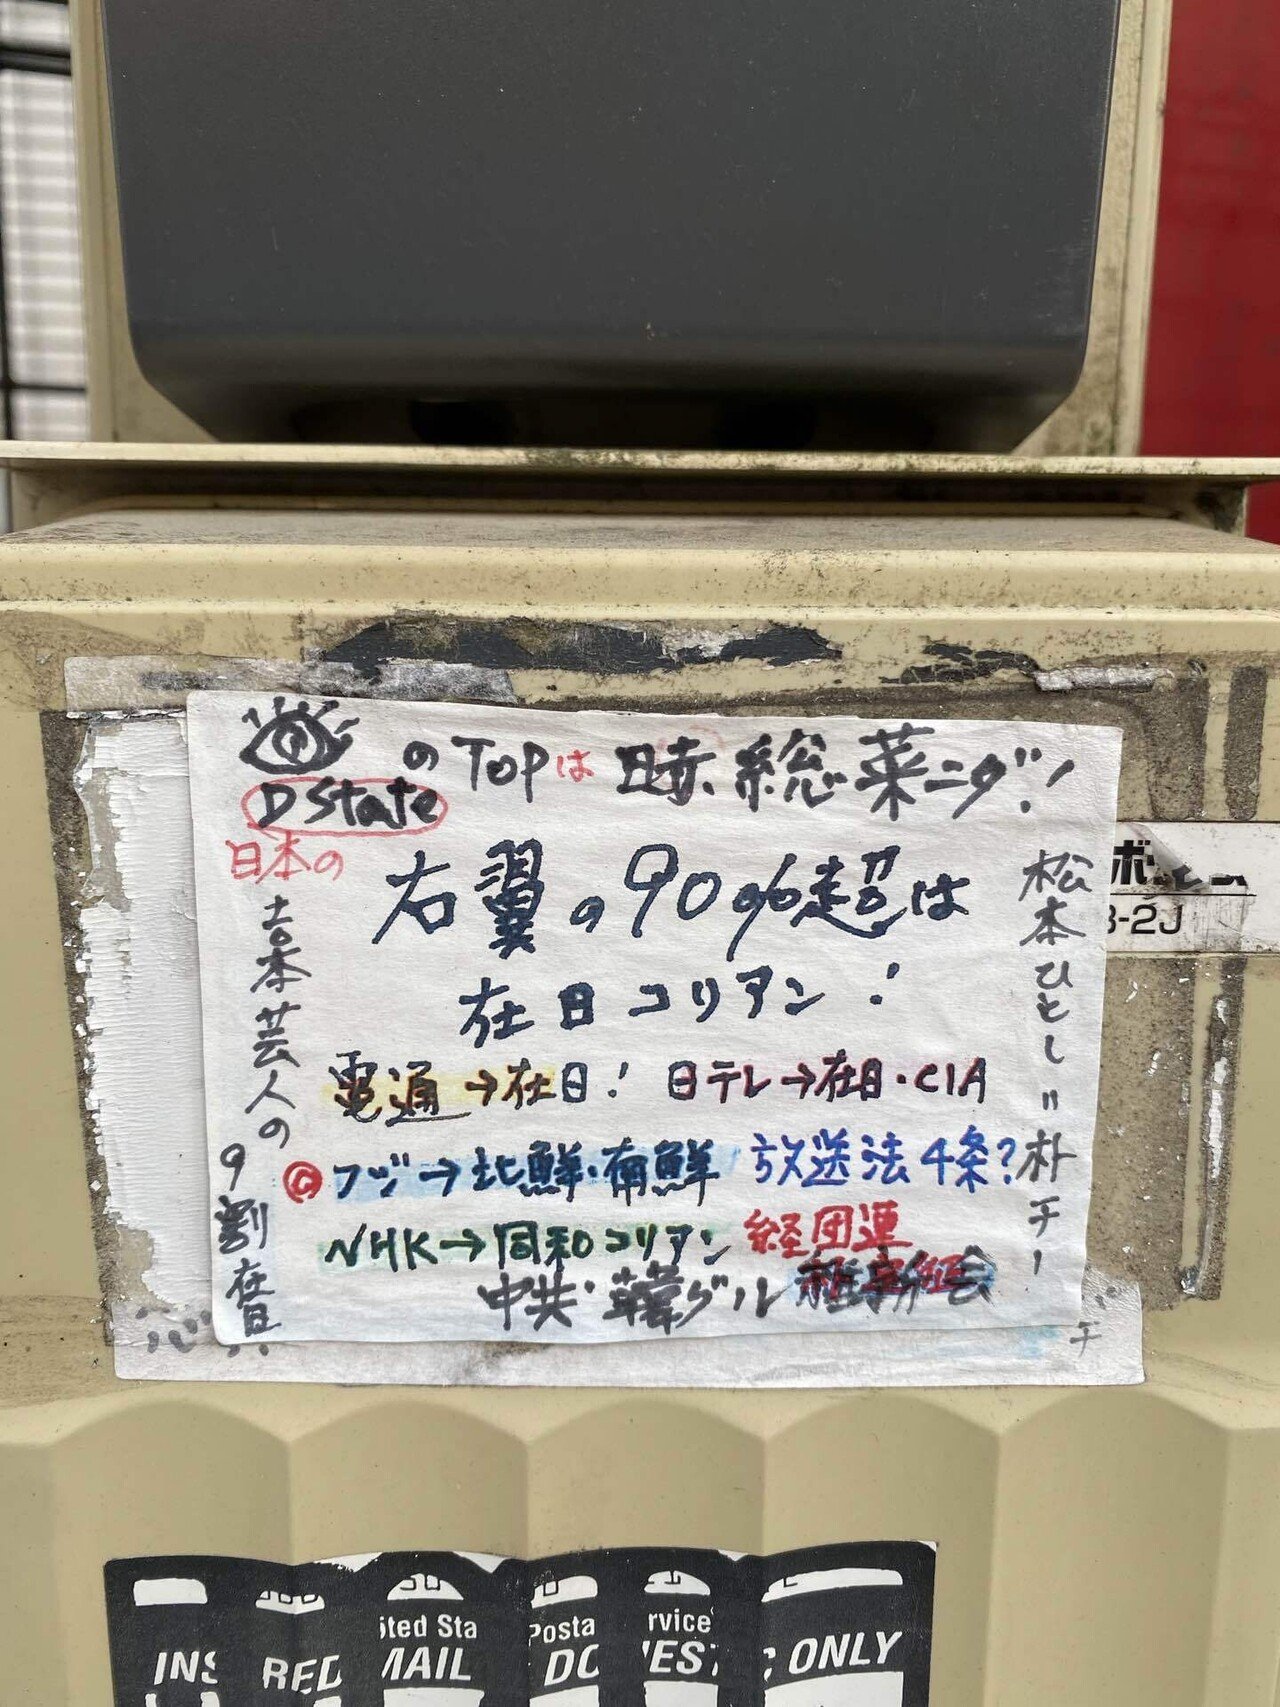 のTOPは
総菜ニダ!
DState
日本の
吉本芸人の9割在日
右翼の90%超は
在日コリアン!
松本ひとし=朴チー
電通→在日! 日テレ→在日・CIA
©フジ→北鮮・南鮮 放送法4条?
NHK→同和コリアン 経団連
中共・グル
チ
3-2J
ited Sta
Posta
rvice
MAIL
ONLY